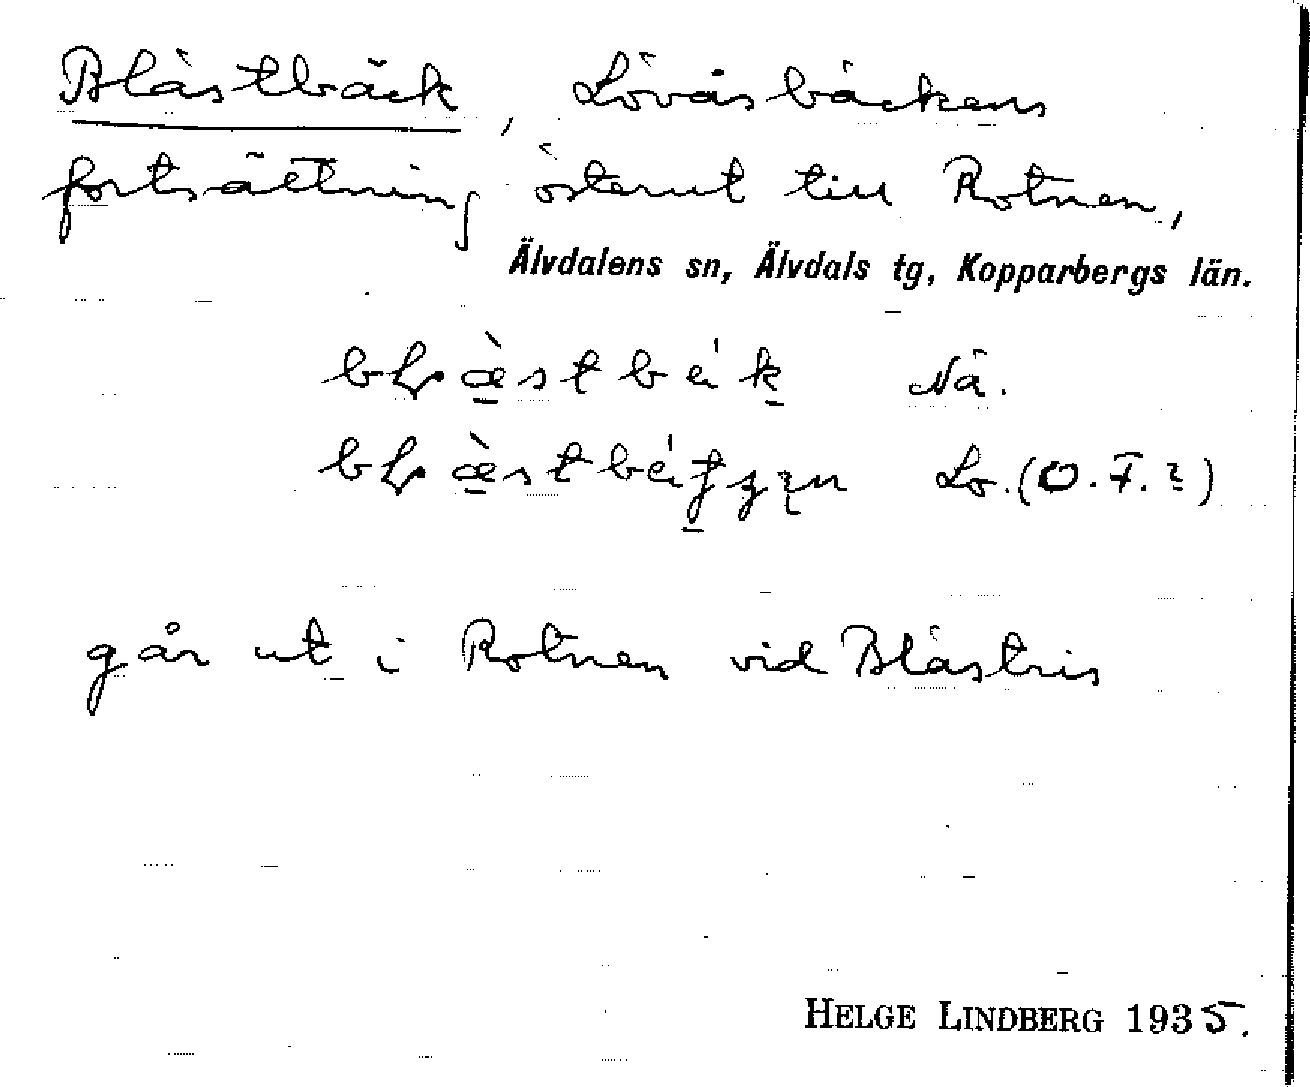 Blästbäck, Lövåsbäckens
fortsättning österut till Rotnen,
Älvdalens sn, Älvdals tg, Kopparbergs län.
Nä.
Lo. (O.F.?)
går ut i Rotnen vid Blästris
HELGE LINDBERG 1935.